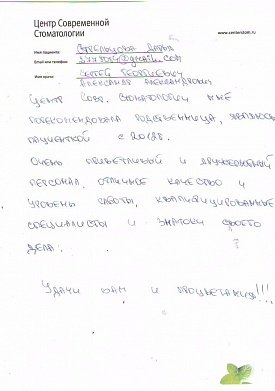 Центр Современной
Стоматологии
www.centerstom.ru
Имя пациента: Стрельцова Дарья
Email или телефон:
Имя врача: Сергей Георгиевич
Александр Александрович
Центр Совр. Стоматологии мне
порекомендовала родственница, являюсь
пациенткой с 2012г.
Очень приветливый и дружелюбный
персонал, отличное качество и
уровень работы, квалифицированные
специалисты и знатоки своего
дела.
Удачи вам и процветания!!!